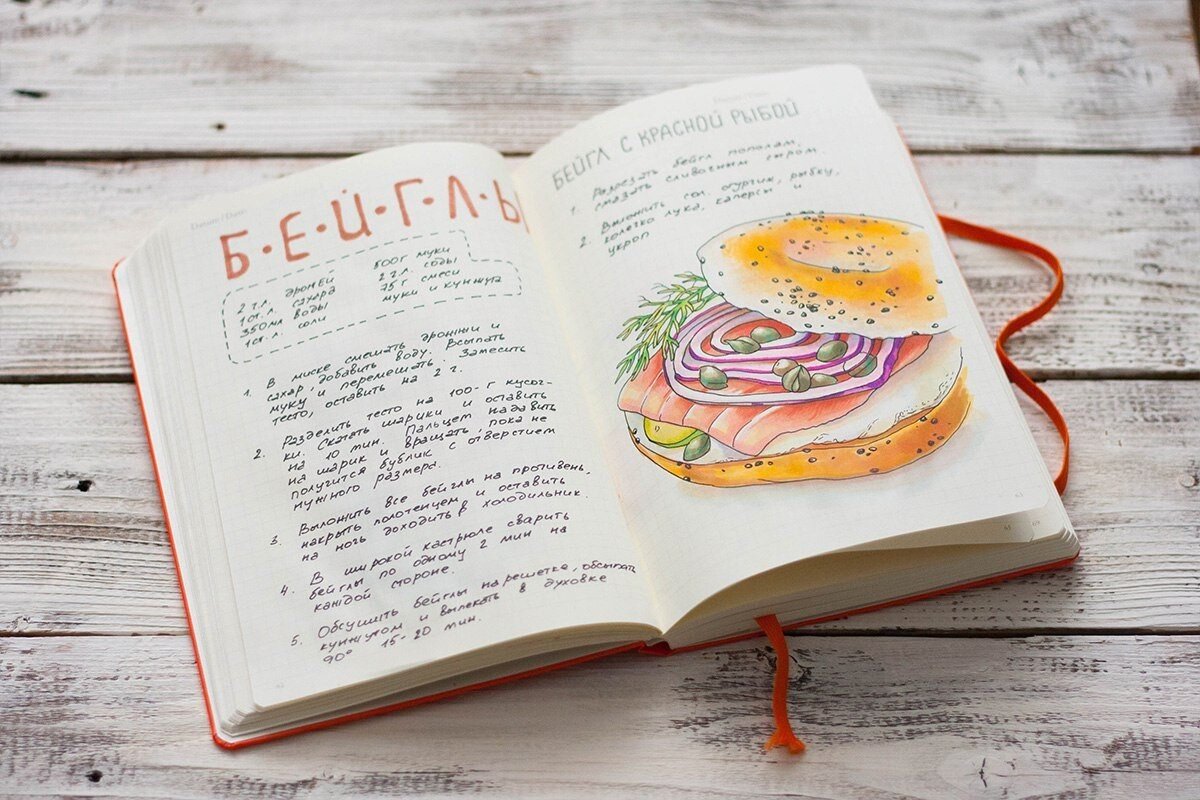 Б·Е·Й·Г·Л·Ы
2 ч.л. дрожжей
1 ст. л. сахара
350мл воды
1 ст. л. соли
500г муки
2 ч.л. соды
25 г смеси
муки и кунжута
1. В миске смешать дрожжи и
сахар, добавить воду. Всыпать
муку и перемешать. Замесить
тесто, оставить на 2 г.
2. Разделить тесто на 100-г кусоч-
ки. Скатать шарики и оставить
на 10 мин. Пальцем надавить
на шарик и вращать, пока не
получится бублик с отверстием
нужного размера.
3. Выложить все бейглы на противень,
накрыть полотенцем и оставить
на ночь доходить в холодильник.
4. В широкой кастрюле сварить
бейглы по одному 2 мин на
каждой стороне.
5. Обсушить бейглы на решетке, обсыпать
кунжутом и выпекать в духовке
90° 15-20 мин.
БЕЙГЛ С КРАСНОЙ РЫБОЙ
1. Разрезать бейгл пополам,
смазать сливочным сыром.
2. Выложить сол. огурчик, рыбку,
колечко лука, каперсы и
укроп